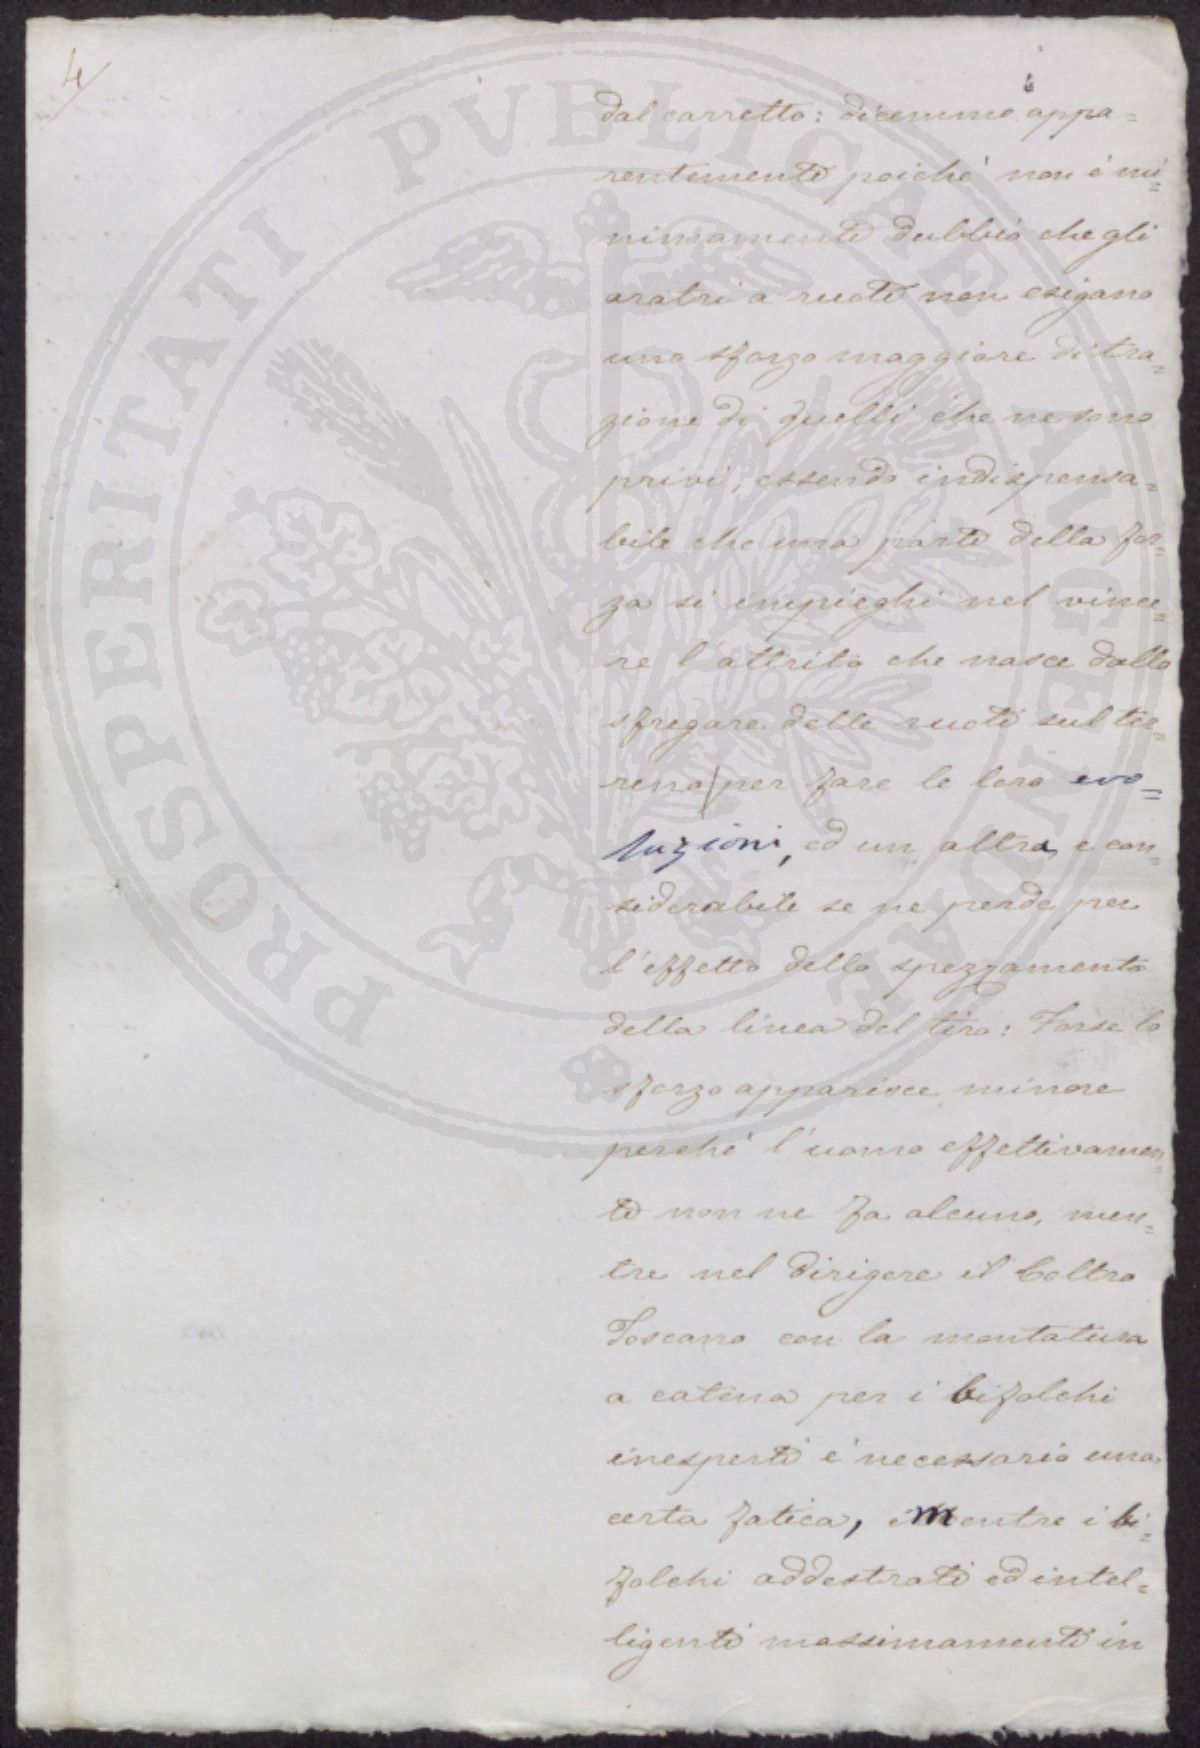 4
dal carretto: dicemmo appa=
rentemente poiché non è mi=
nimamente dubbio che gli
aratri a ruote non esigano
uno sforzo maggiore di tra=
zione di quelli che ne sono
privi, essendo indispensa=
bile che una parte della for=
za si impieghi nel vince=
re l'attrito che nasce dallo
sfregare delle ruote sul ter=
reno per fare le loro evo=
luzioni, ed un altra e con=
siderabile se ne perde per
l'effetto dello spezzamento
della linea del tiro: Forse lo
sforzo apparisce minore
perché l'uomo effettivamen=
te non ne fa alcuno, men=
tre nel dirigere il Coltro
Toscano con la montatura
a catena per i bifolchi
inesperti è necessario una
certa fatica, mentre i bi=
folchi addestrati ed intel=
ligenti massimamente in
PROSPERITATI PVBLICAE AVGENDAE